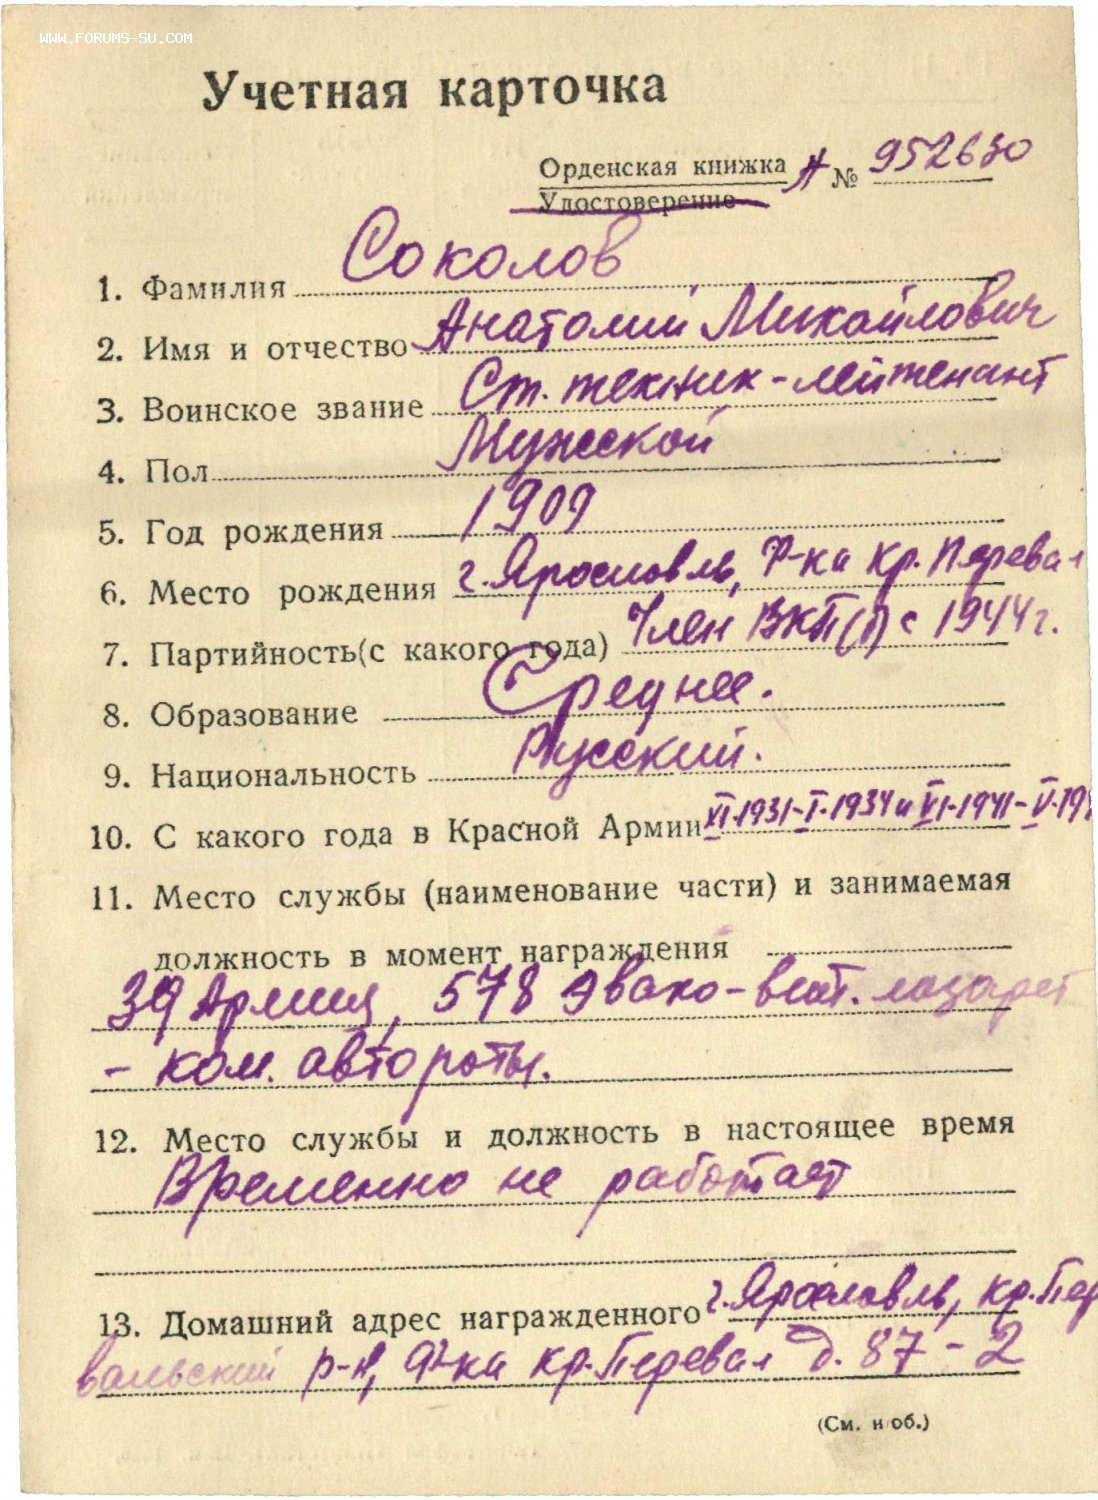 WWW.FORUMS-SU.COM
Учетная карточка
Орденская книжка А № 952630
Удостоверение
1. Фамилия Соколов
2. Имя и отчество Анатолий Михайлович
3. Воинское звание Ст. техник-лейтенант
4. Пол Мужской
5. Год рождения 1909
6. Место рождения г. Ярославль, ф-ка Кр. Перевал
7. Партийность (с какого года) Член ВКП(б) с 1944 г.
8. Образование Среднее.
9. Национальность Русский.
10. С какого года в Красной Армии XI-1931-I-1934 и VI-1941-V-19
11. Место службы (наименование части) и занимаемая
должность в момент награждения
39 Армия, 578 эвако-вет. лазарет
- ком. автороты.
12. Место службы и должность в настоящее время
Временно не работает
13. Домашний адрес награжденного г. Ярославль, Кр. Пер
вальский р-н, ф-ка Кр. Перевал д. 87-2
(См. н/об.)